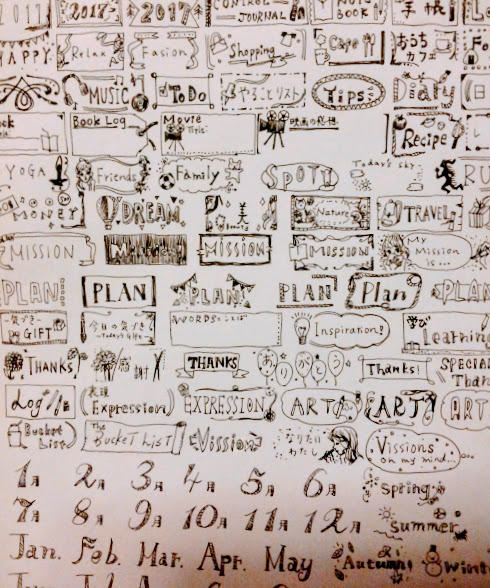 2011 2017 2017 CONTROL JOURNAL NOTE BOOK 手帳
HAPPY Relax Fasion Shopping Cafe おうちカフェ
MUSIC ToDo やることリスト Tips Diary
Book Log Movie Title: 映画の感想 Recipe
YOGA Friends Family SPOTU Today's sky RU
MONEY DREAM Nature TRAVEL
MISSION MISSION MISSION My Mission is...
PLAN PLAN PLAN PLAN Plan PLAN
気づき GIFT 今日の気づき ~Today's Gift~ WORDS ことば Inspiration! 学び Learning
THANKS 感謝 THANKS ありがとう Thanks! SPECIAL Than
Log 表現 (Expression) EXPRESSION ART ART ART
Bucket List The BUCKET LIST Vission なりたいわたし Vissions on my mind..
1月 2月 3月 4月 5月 6月 spring
7月 8月 9月 10月 11月 12月 summer
Jan. Feb. Mar. Apr. May Autumn wint